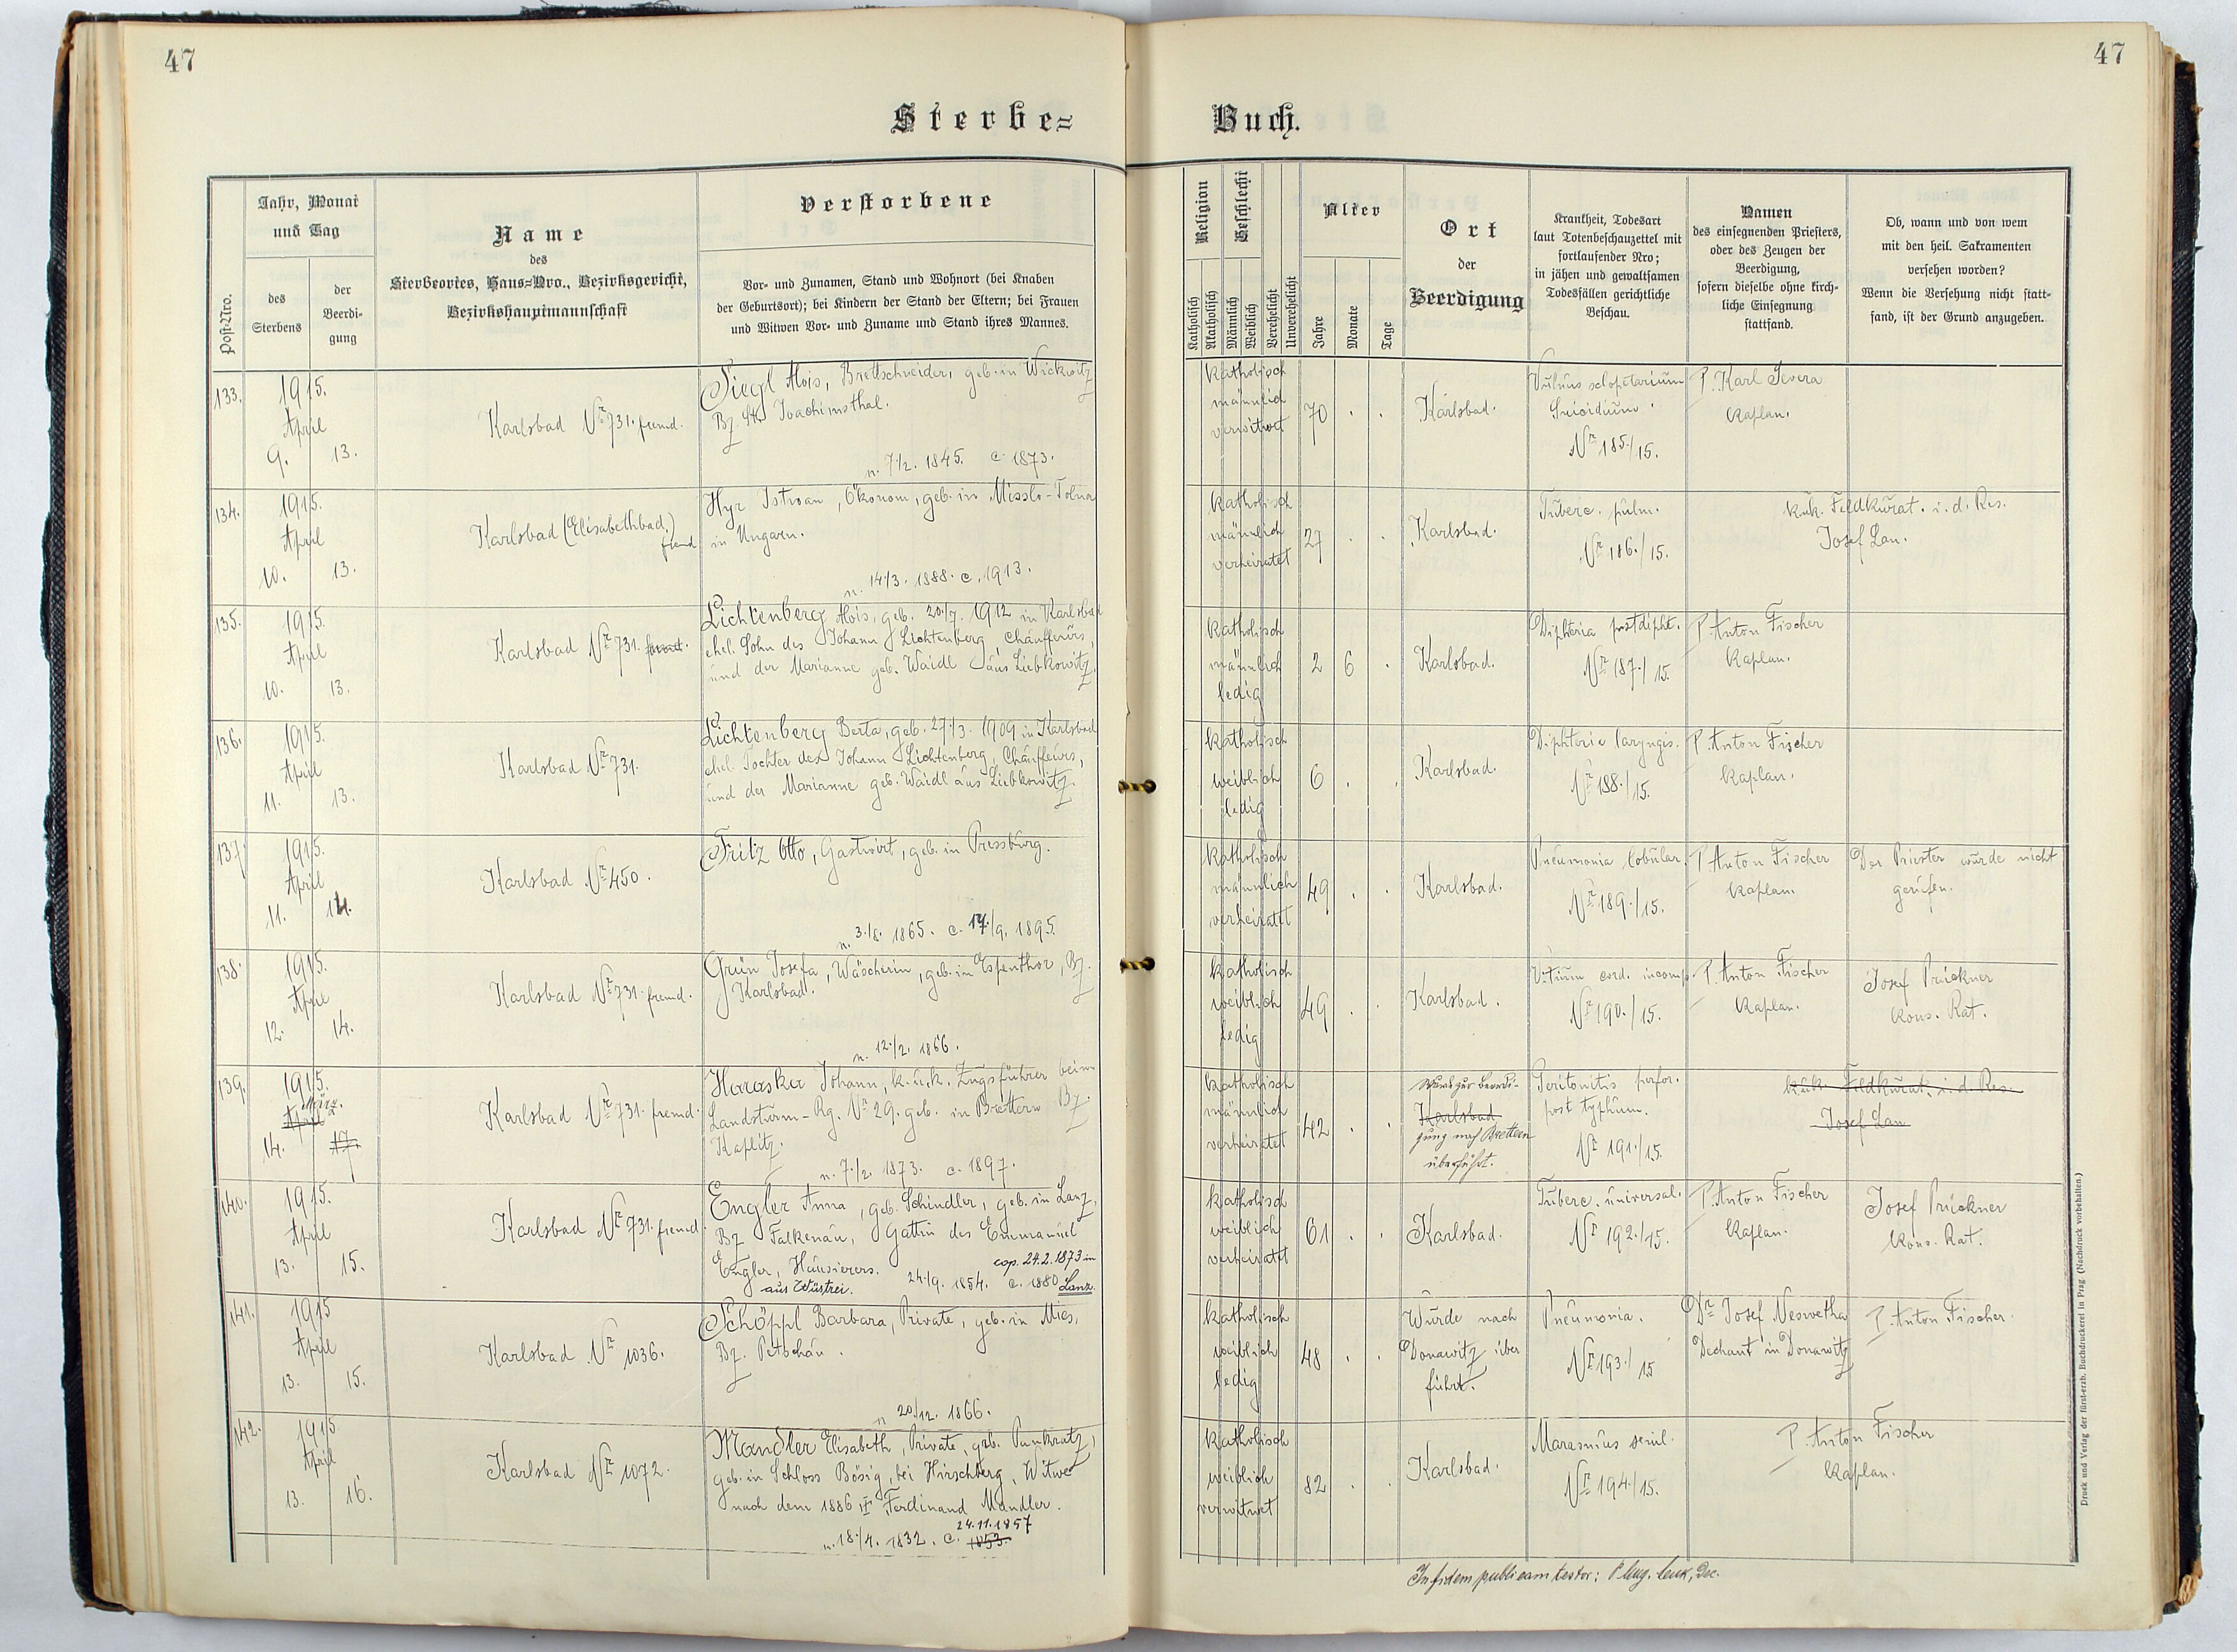 47
47
Sterbe=
Buch.
Post-Nro.
Jahr, Monat
und Tag
des
Sterbens
der
Beerdi-
gung
Name
des
Sterbeortes, Haus=Nro., Bezirksgericht,
Bezirkshauptmannschaft
Verstorbene
Vor- und Zunamen, Stand und Wohnort (bei Knaben
der Geburtsort); bei Kindern der Stand der Eltern; bei Frauen
und Witwen Vor- und Zuname und Stand ihres Mannes.
Religion
Katholisch
Akatholisch
Geschlecht
Männlich
Weiblich
Verehelicht
Unverehelicht
Alter
Jahre
Monate
Tage
Ort
der
Beerdigung
Krankheit, Todesart
laut Totenbeschauzettel mit
fortlaufender Nro;
in jähen und gewaltsamen
Todesfällen gerichtliche
Beschau.
Namen
des einsegnenden Priesters,
oder des Zeugen der
Beerdigung,
sofern dieselbe ohne kirch-
liche Einsegnung
stattfand.
Ob, wann und von wem
mit den heil. Sakramenten
versehen worden?
Wenn die Versehung nicht statt-
fand, ist der Grund anzugeben.
133.
1915.
April
9. 13.
Karlsbad Nr 731. fremd.
Siegl Alois, Brettschneider, geb. in Wickwitz
Bz. St. Joachimsthal.
n. 7/2. 1845. c. 1873.
katholisch
männlich
verwitwet
70 . .
Karlsbad.
Vulnus sclopetarium
Suicidium.
Nr 185./15.
P. Karl Severa
Kaplan.
134.
1915.
April
10. 13.
Karlsbad (Elisabethbad,)
fremd
Hyr Istvan, Ökonom, geb. in Misslo-Tolna
in Ungarn.
n. 14/3. 1888. c. 1913.
katholisch
männlich
verheiratet
27 . .
Karlsbad.
Tuberc. pulm.
Nr 186./15.
k.u.k. Feldkurat. i. d. Res.
Josef Lan.
135.
1915.
April
10. 13.
Karlsbad Nr 731. fremd.
Lichtenberg Alois, geb. 20./7. 1912 in Karlsbad
ehel. Sohn des Johann Lichtenberg Chauffeurs,
und der Marianne geb. Waidl aus Liebkowitz.
katholisch
männlich
ledig
2 6 .
Karlsbad.
Diphteria postdipht.
Nr 187./15.
P. Anton Fischer
Kaplan.
136.
1915.
April
11. 13.
Karlsbad Nr 731.
Lichtenberg Berta, geb. 27./3. 1909 in Karlsbad
ehel. Tochter des Johann Lichtenberg, Chauffeurs,
und der Marianne geb. Waidl aus Liebkowitz.
katholisch
weiblich
ledig
6 . .
Karlsbad.
Diphterie laryngis.
Nr 188./15.
P. Anton Fischer
Kaplan.
137
1915.
April
11. 14.
Karlsbad Nr 450.
Fritz Otto, Gastwirt, geb. in Pressburg.
n. 3./8. 1865. c. 17./9. 1895.
katholisch
männlich
verheiratet
49 . .
Karlsbad.
Pneumonia lobular.
Nr 189./15.
P. Anton Fischer
Kaplan.
Der Priester wurde nicht
gerufen.
138.
1915.
April
12. 14.
Karlsbad Nr 731. fremd.
Grün Josefa, Wäscherin, geb. in Espenthor, Bz.
Karlsbad.
n. 12./2. 1866.
katholisch
weiblich
ledig
49 . .
Karlsbad.
Vitium cord. incomp.
Nr 190./15.
P. Anton Fischer
Kaplan.
Josef Prückner
Kons. Rat.
139.
1915.
März.
April
14. 17.
Karlsbad Nr 731. fremd.
Johann, k.u.k. Zugsführer beim
Landsturm-Rg. Nr 29. geb. in Brettern Bz.
Kaplitz.
n. 7./2. 1873. c. 1897.
katholisch
männlich
verheiratet
42 . .
Wurde zur Beerdi-
Karlsbad
gung nach Brettern
überführt.
Peritonitis perfor.
post typhum.
Nr 191./15.
k.u.k. Feldkurat. i. d. Res.
Josef Lan
140.
1915.
April
13. 15.
Karlsbad Nr 731. fremd.
Engler Anna, geb. Schindler, geb. in Lanz,
Bz. Falkenau, Gattin des Emmanuel
Engler, Hausierers. cop. 24.2.1873 in
aus Wüstrei. 24./9. 1854. c. 1880 Lanz.
katholisch
weiblich
verheiratet
61 . .
Karlsbad.
Tuberc. universal.
Nr 192./15.
P. Anton Fischer
Kaplan.
Josef Prückner
Kons. Rat.
141.
1915
April
13. 15.
Karlsbad Nr 1036.
Schöppl Barbara, Private, geb. in Mies,
Bz. Petschau.
n 20./12. 1866.
katholisch
weiblich
ledig
48 . .
Wurde nach
Donawitz über
führt.
Pneumonia.
Nr 193./15
Dr Josef Neswetha
Dechant in Donawitz
P. Anton Fischer.
142.
1915
April
13. 16.
Karlsbad Nr 1072.
Mandler Elisabeth, Private, geb. Pankratz,
geb. in Schloss Bösig, bei Hirschberg, Witwe
nach dem 1886 Ferdinand Mandler.
24.11.1857
n. 18./4. 1832. c. 1853.
katholisch
weiblich
verwitwet
82 . .
Karlsbad.
Marasmus senil.
Nr 194/15.
P. Anton Fischer
Kaplan.
In fidem publicam testor:
Druck und Verlag der fürst-erzb. Buchdruckerei in Prag. (Nachdruck vorbehalten.)